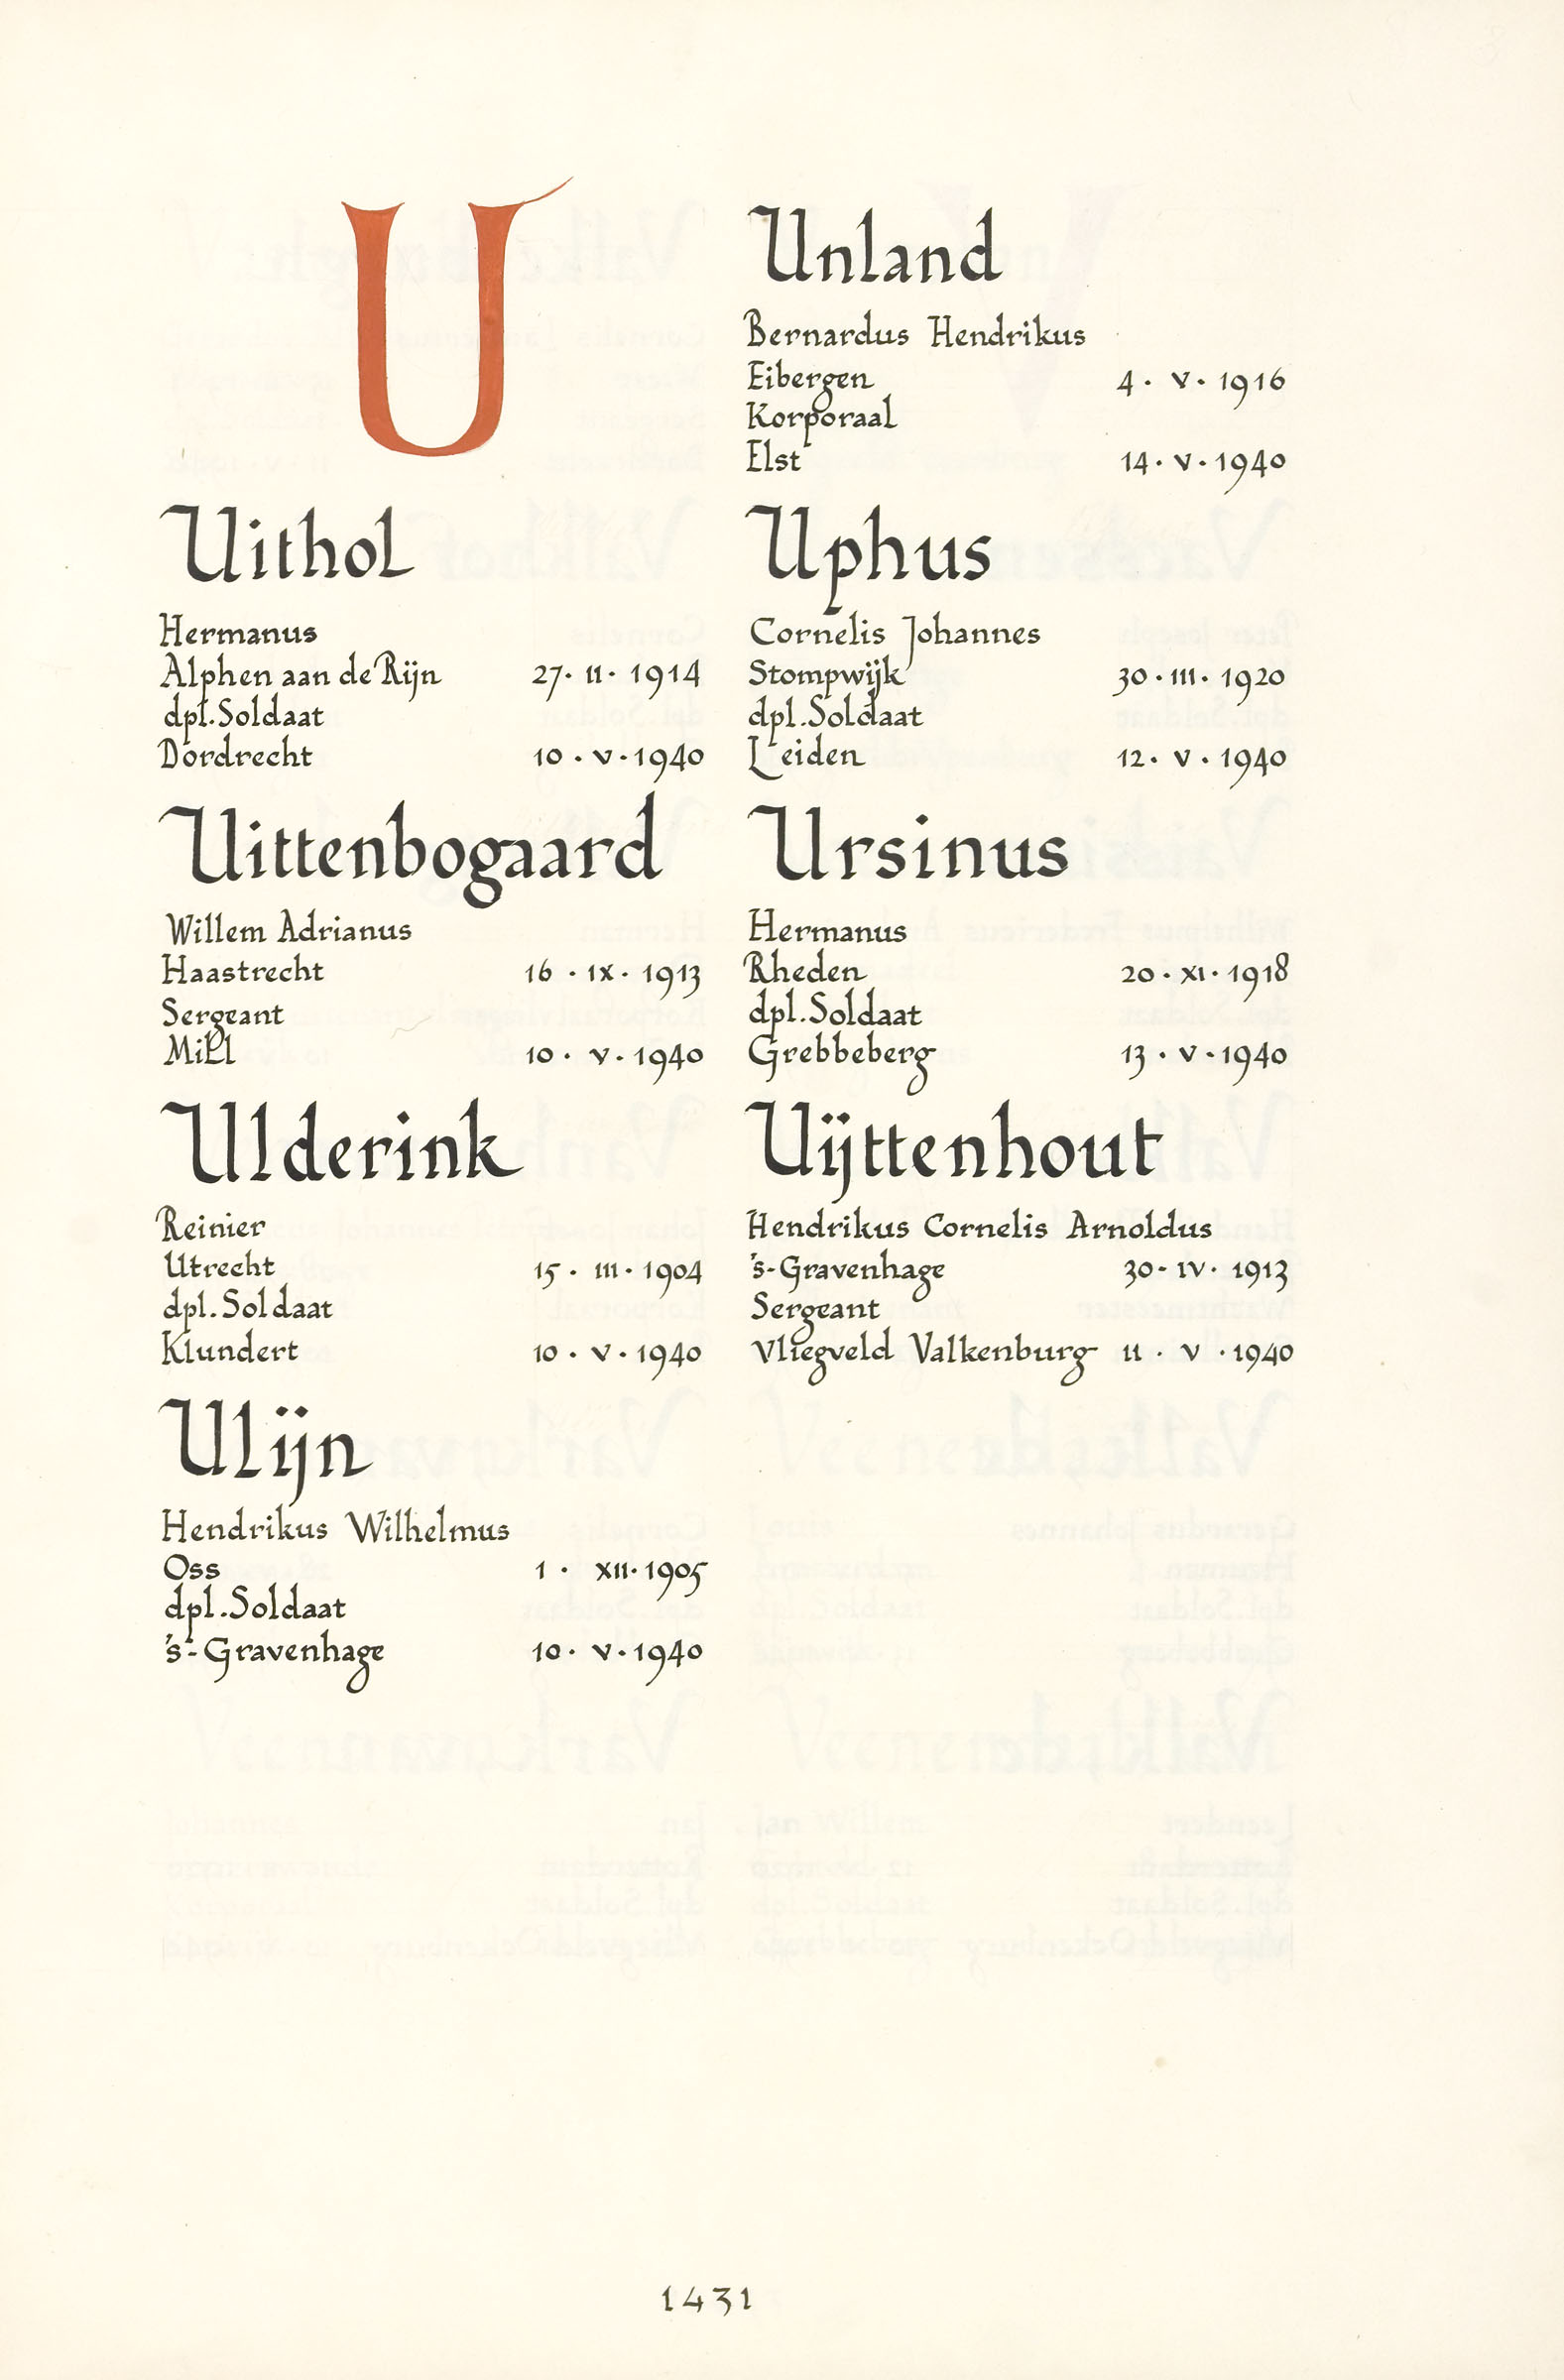 U
Uithol
Hermanus
Alphen aan de Rijn 27. II. 1914
dpl. Soldaat
Dordrecht 10. V. 1940
Uittenbogaard
Willem Adrianus
Haastrecht 16. IX. 1913
Sergeant
Mill 10. V. 1940
Ulderink
Reinier
Utrecht 15. III. 1904
dpl. Soldaat
Klundert 10. V. 1940
Ulijn
Hendrikus Wilhelmus
Oss 1. XII. 1905
dpl. Soldaat
's-Gravenhage 10. V. 1940
Unland
Bernardus Hendrikus
Eibergen 4. V. 1916
Korporaal
Elst 14. V. 1940
Uphus
Cornelis Johannes
Stompwijk 30. III. 1920
dpl. Soldaat
Leiden 12. V. 1940
Ursinus
Hermanus
Rheden 20. XI. 1918
dpl. Soldaat
Grebbeberg 13. V. 1940
Uijttenhout
Hendrikus Cornelis Arnoldus
's-Gravenhage 30. IV. 1913
Sergeant
Vliegveld Valkenburg 11. V. 1940
1431